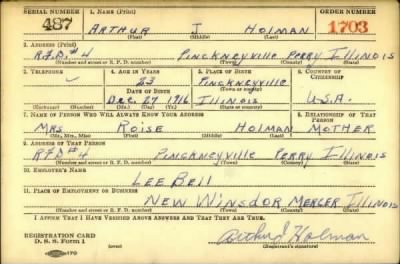 SERIAL NUMBER 1. NAME (Print) ORDER NUMBER
487 ARTHUR J HOLMAN 1703
(First) (Middle) (Last)
2. ADDRESS (Print)
R.F.D.#4 PINCKNEYVILLE PERRY ILLINOIS
(Number and street or R. F. D. number) (Town) (County) (State)
3. TELEPHONE 4. AGE IN YEARS 5. PLACE OF BIRTH 6. COUNTRY OF CITIZENSHIP
23 PINCKNEYVILLE
(Town or county)
DATE OF BIRTH
DEC. 27 1916 ILLINOIS U.S.A.
(Exchange) (Number) (Mo.) (Day) (Yr.) (State or country)
7. NAME OF PERSON WHO WILL ALWAYS KNOW YOUR ADDRESS 8. RELATIONSHIP OF THAT PERSON
MRS ROISE HOLMAN MOTHER
(Mr., Mrs., Miss) (First) (Middle) (Last)
9. ADDRESS OF THAT PERSON
R.F.D.#4 PINCKNEYVILLE PERRY ILLINOIS
(Number and street or R. F. D. number) (Town) (County) (State)
10. EMPLOYER'S NAME
LEE BELL
11. PLACE OF EMPLOYMENT OR BUSINESS
NEW WINSDOR MERCER ILLINOIS
(Number and street or R. F. D. number) (Town) (County) (State)
I AFFIRM THAT I HAVE VERIFIED ABOVE ANSWERS AND THAT THEY ARE TRUE.
REGISTRATION CARD
D. S. S. Form 1 Arthur J Holman
(Registrant's signature)